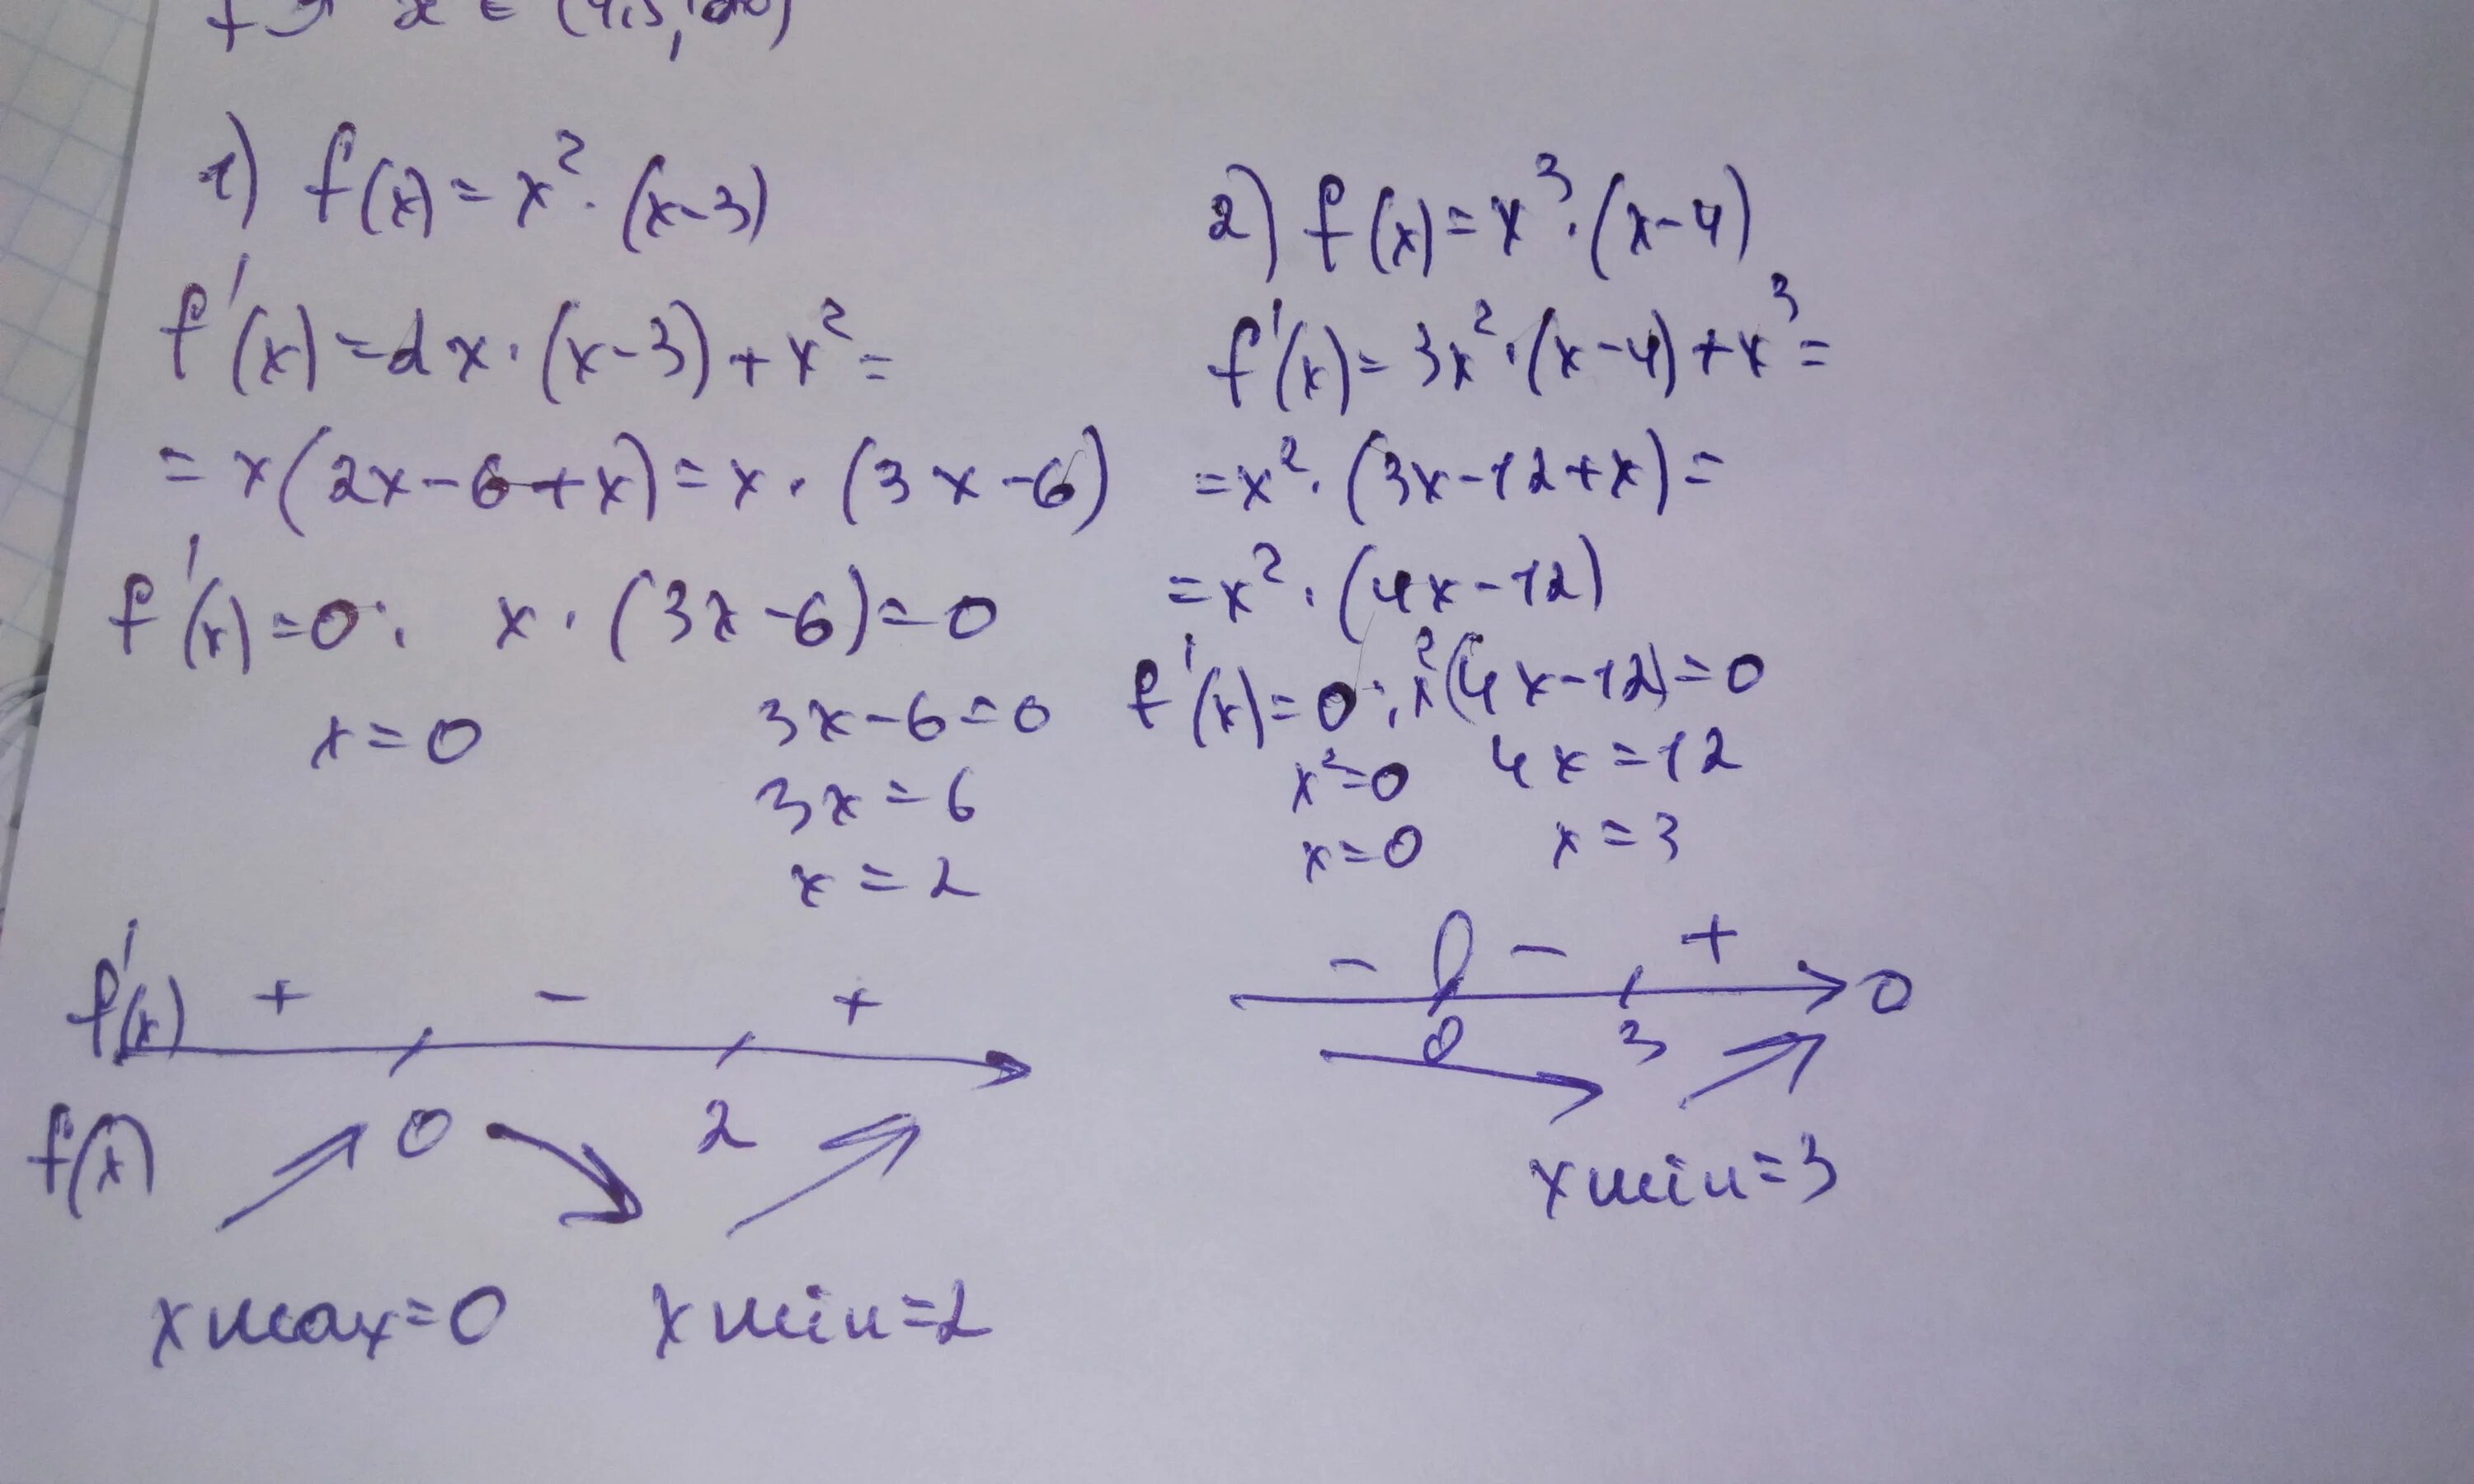 x ∈ (
1) f(x)=x²·(x-3)
f'(x)=2x·(x-3)+x²=
=x(2x-6+x)=x·(3x-6)
f'(x)=0: x·(3x-6)=0
x=0 3x-6=0
3x=6
x=2
f'(x) + - +
f(x) 0 2
xmax=0 xmin=2
2) f(x)=x³·(x-4)
f'(x)=3x²·(x-4)+x³=
=x²·(3x-12+x)=
=x²·(4x-12)
f'(x)=0: x²(4x-12)=0
x²=0 4x=12
x=0 x=3
- - +
0 3 0
xmin=3